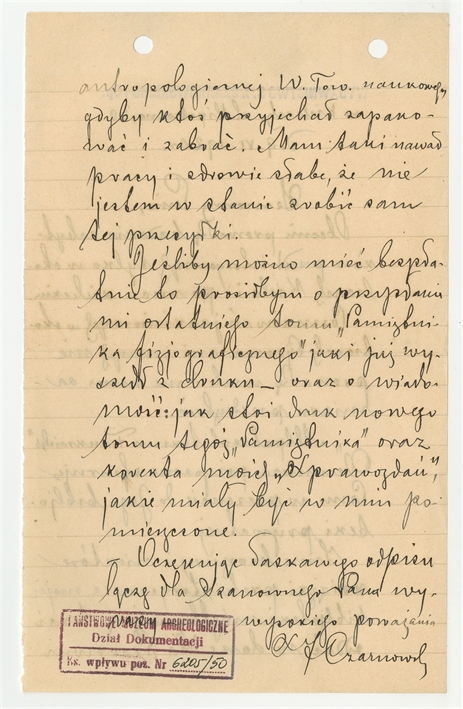 antropologicznej W. Tow. naukowego,
gdyby ktoś przyjechał zapako-
wać i zabrać. Mam taki nawał
pracy i zdrowie słabe, że nie
jestem w stanie zrobić sam
tej przesyłki.
Jeśliby można mieć bezpła-
tnie to prosiłbym o przysłanie
mi ostatniego tomu „Pamiętni-
ka fizjograficznego" jaki już wy-
szedł z druku – oraz o wiado-
mość: jak stoi druk nowego
tomu tegoż „Pamiętnika" oraz
korekta moich „Sprawozdań",
jakie miały być w nim po-
mieszczone.
– Oczekując łaskawego odpisu
łączę dla Szanownego Pana wy-
wysokiego poważania
Czarnowski
PAŃSTWOWE MUZEUM ARCHEOLOGICZNE
Dział Dokumentacji
Ks. wpływu poz. Nr 6205/50